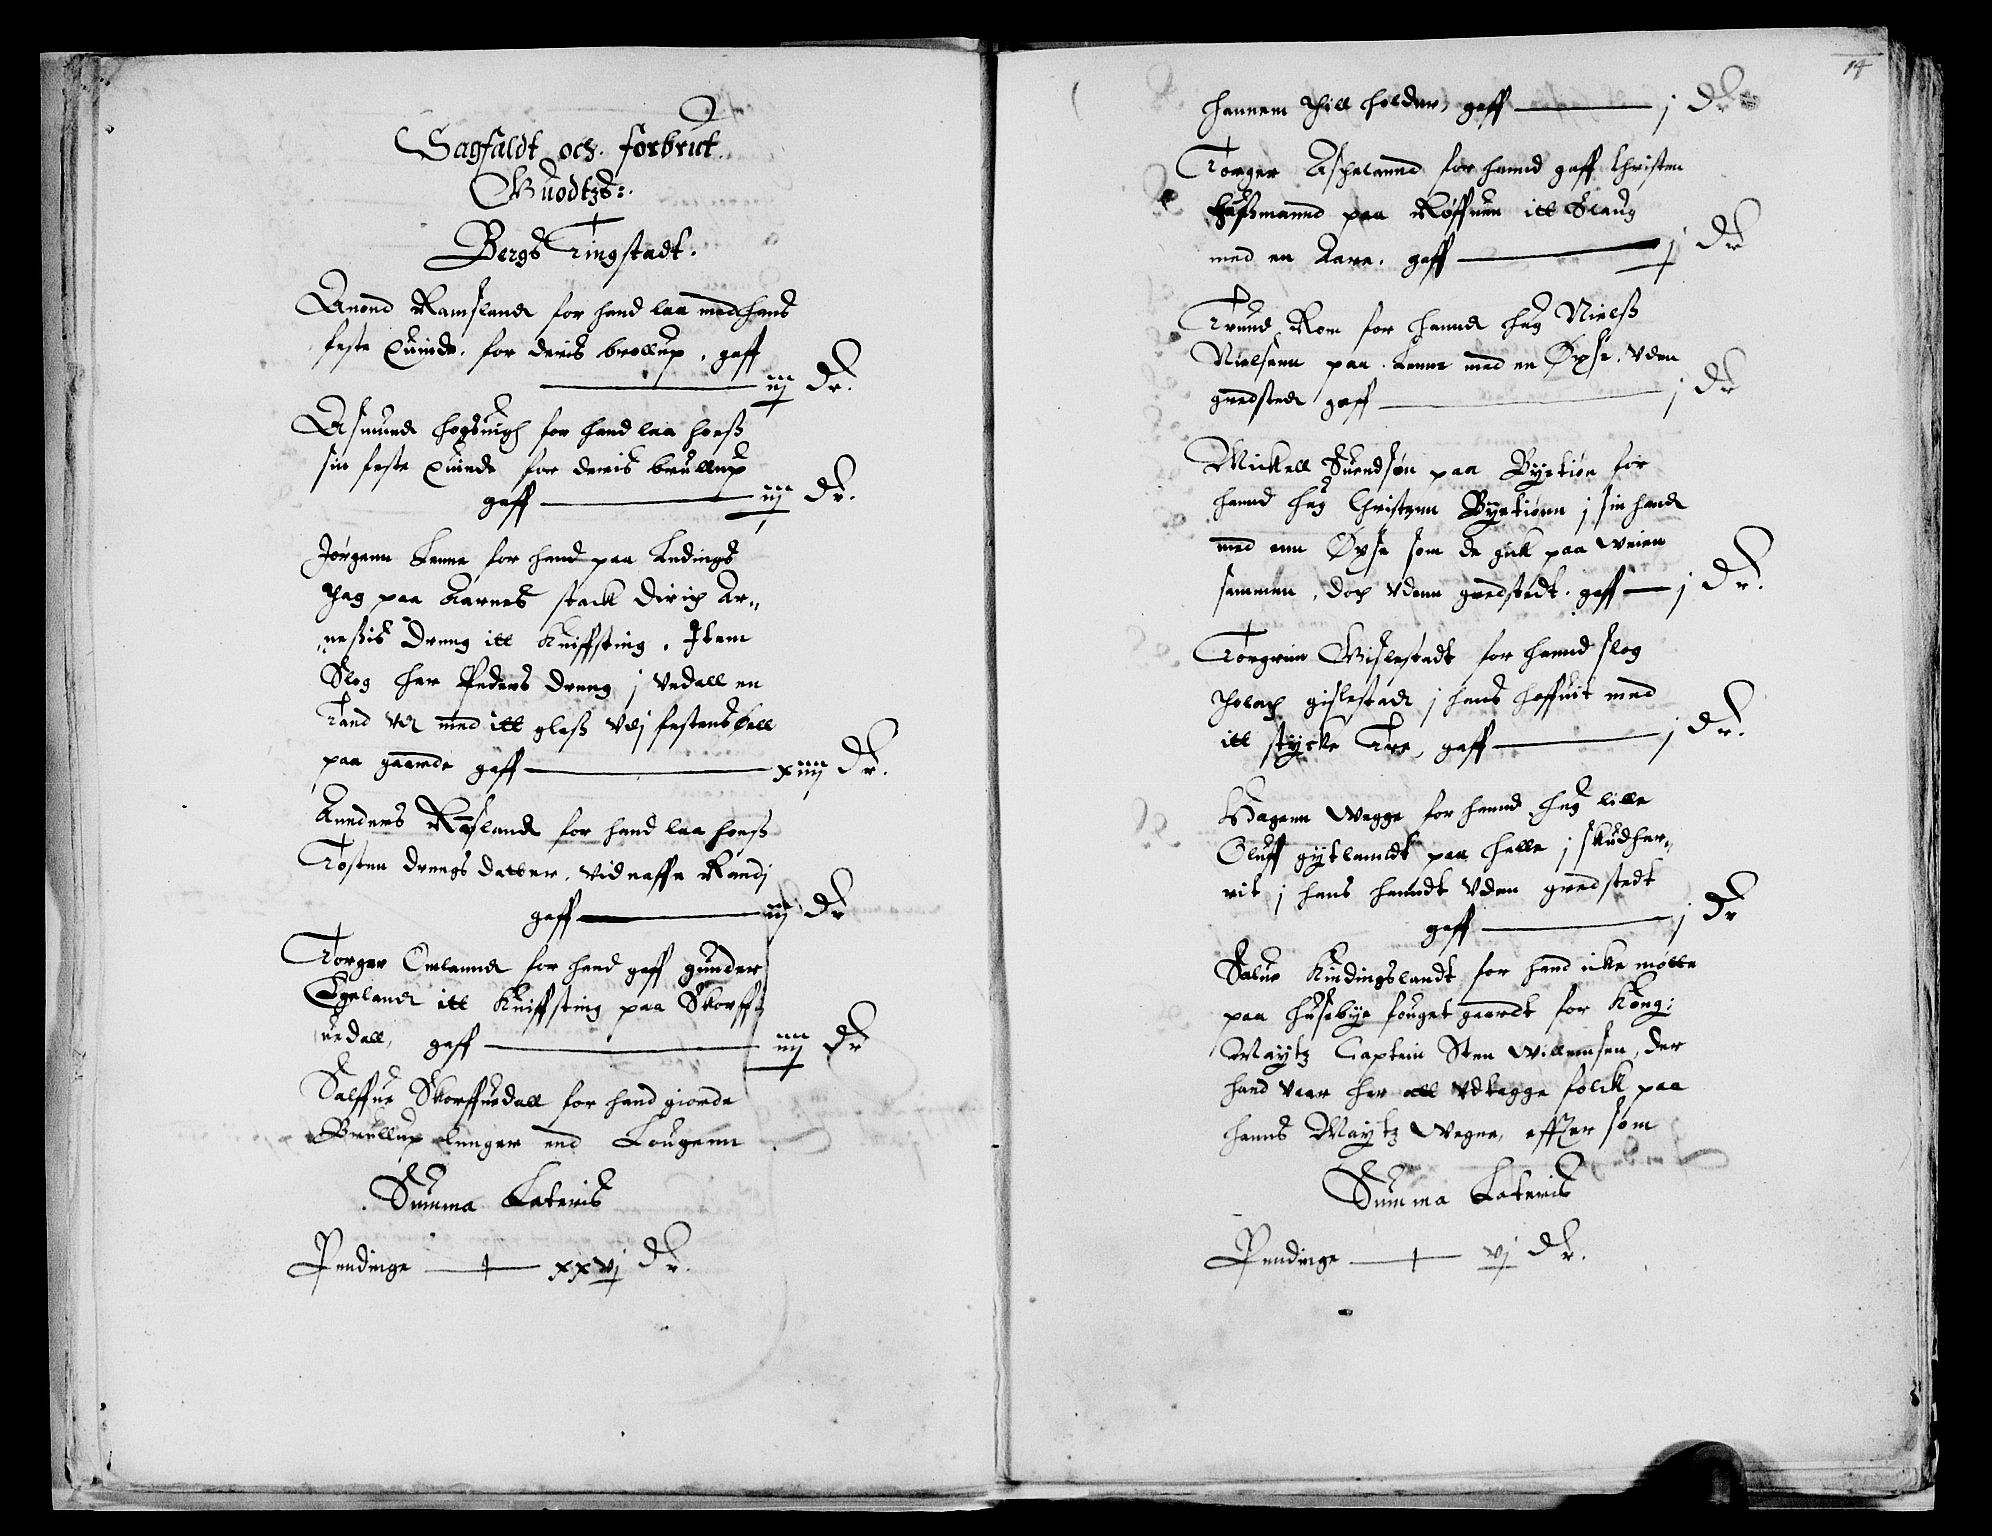 Sagfaldt och forbrut
Guodtzs:
Bergs Tingstadt.
Anond Ramslandt for hand laa med hans
feste Quinde, for deris brollup, gaff
iij Dr.
Asmund hogsuigh for hand laa hoess
sin feste Quinde for deris brullup
gaff iij Dr.
Jørgenn Lenne for hand paa Ledings
Thag paa Aarnes stack Dirich Ar„
„nessis Dreng itt Kniffsting, Item
Slog her Peders dreng j Vedall en
Tand Vd med itt glass Vdj festens
paa gaarde gaff xiiij Dr.
Anders Røslandt for hand laa hoess
Tosten drengs datter, vid naffn Randj
gaff iij Dr
Torger Omlandt for hand gaff gunder
Egelandt itt Kniffsting paa Skorff
uedall, gaff iiij Dr
Salffue Skorffuedall for hand giorde
Brullup lenger end Lougenn
Summa Lateris
Pendinge xxvj Dr.
14
hannem thill holder, gaff j Dr
Torger Aspelannd for hannd gaff Christen
Hussmannd paa Røffnen itt Slaug
med en Aare, gaff j Dr
Trund Rom for hannd hug Nielss
Nielsenn paa Lenne med en Øxse, Vden
gredstedt gaff j Dr
Mickell Suendsøn paa Byrkiøn for
hannd hug Christenn Byrkiønn j sin hand
med enn Øxse som de gick paa Weien
sammen, doch Vdenn gredstedt, gaff j Dr.
Torgrim Gislestadt for hannd slog
Tholach gislestadt j hans hoffuit med
itt stycke Tre, gaff j Dr.
Hagenn Wegge for hannd hug lille
Oluff gytlamdt paa helle j skudher„
rit j hans hanndt Vden gredstedt
gaff j Dr
Salue Kindingslandt for hand icke møtte
paa husebye fougetgaardt for Kong:
Maytz Captein Sten Willemsen, der
hand Vaar her att Vdlegge folck paa
hanns Maytz Wegne, effter som
Summa Lateris
Pendinge vj Dr.